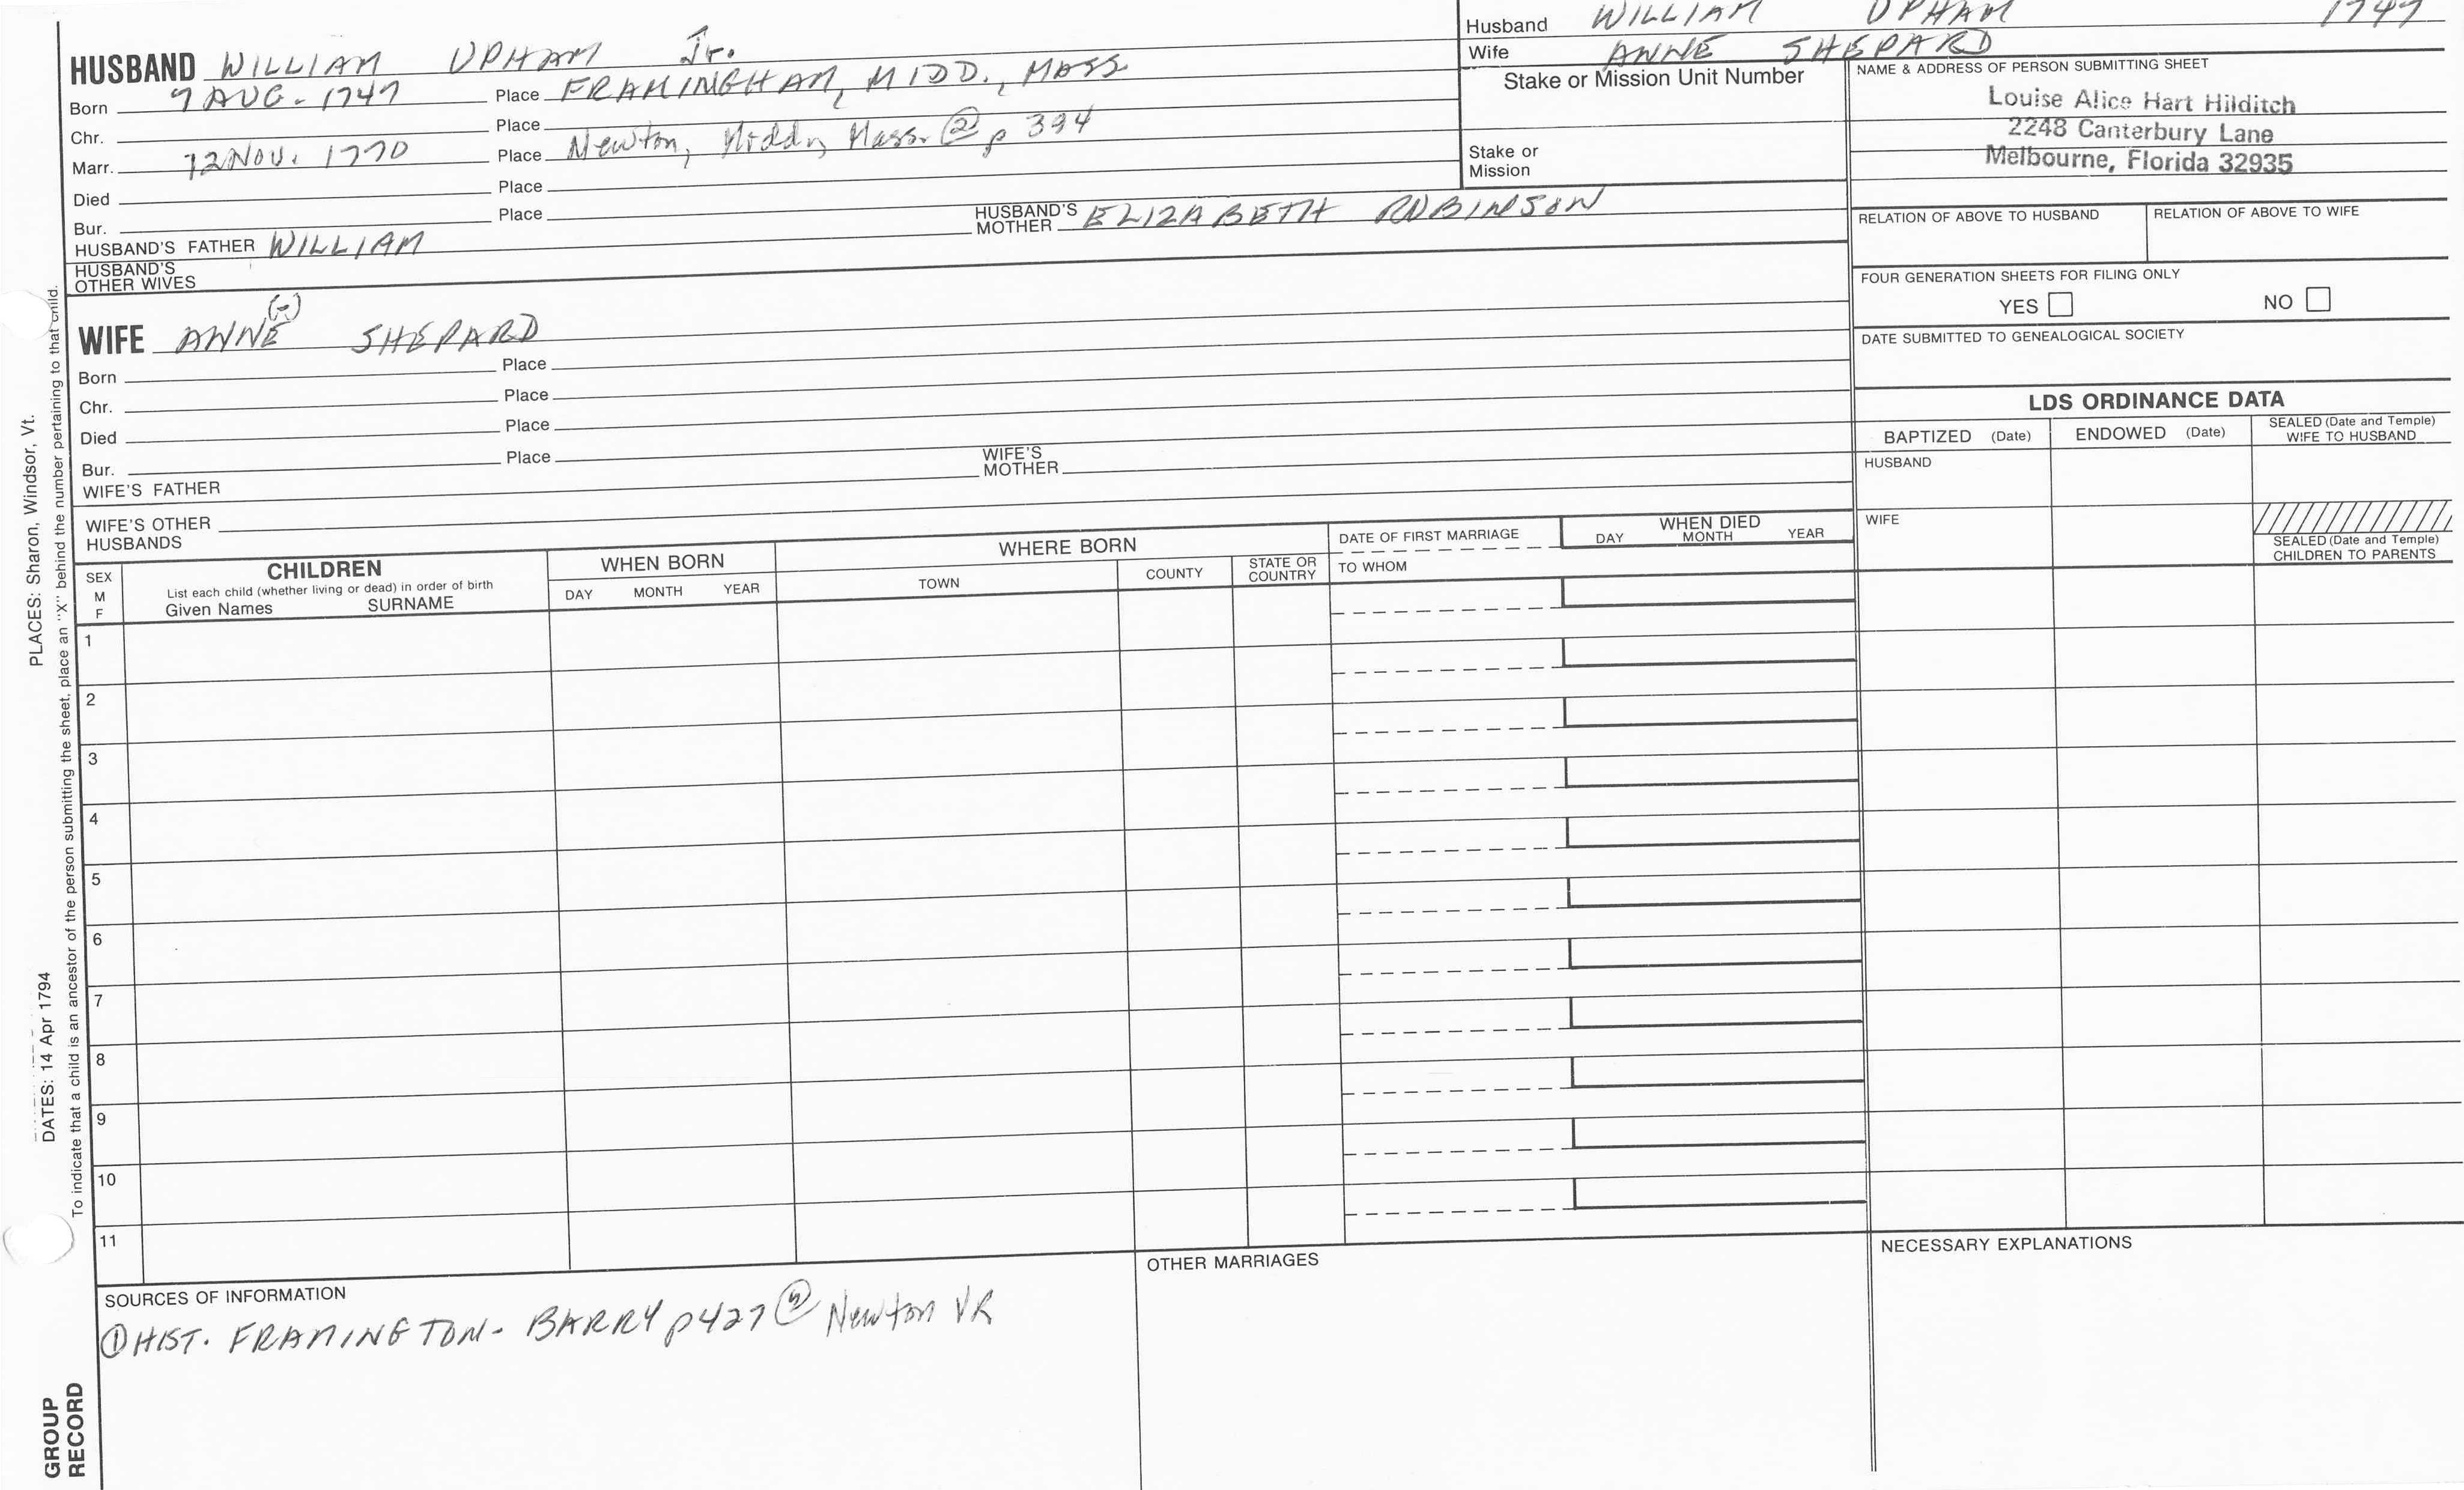 Husband WILLIAM UPHAM 1747
Wife ANNE SHEPARD
HUSBAND WILLIAM UPHAM Jr.
Born 7 AUG. 1747 Place FRAMINGHAM, MIDD., MASS
Chr. Place
Marr. 12 NOV. 1770 Place Newton, Midd, Mass. ② p 394
Died Place
Bur. Place
HUSBAND'S FATHER WILLIAM HUSBAND'S MOTHER ELIZABETH ROBINSON
HUSBAND'S
OTHER WIVES
Stake or Mission Unit Number
Stake or
Mission
NAME & ADDRESS OF PERSON SUBMITTING SHEET
Louise Alice Hart Hilditch
2248 Canterbury Lane
Melbourne, Florida 32935
RELATION OF ABOVE TO HUSBAND RELATION OF ABOVE TO WIFE
FOUR GENERATION SHEETS FOR FILING ONLY
YES NO
DATE SUBMITTED TO GENEALOGICAL SOCIETY
(-)
WIFE ANNE SHEPARD
Born Place
Chr. Place
Died Place
Bur. Place
WIFE'S FATHER WIFE'S MOTHER
WIFE'S OTHER
HUSBANDS
LDS ORDINANCE DATA
BAPTIZED (Date) ENDOWED (Date) SEALED (Date and Temple) WIFE TO HUSBAND
HUSBAND
WIFE
SEALED (Date and Temple)
CHILDREN TO PARENTS
SEX
M
F
CHILDREN
List each child (whether living or dead) in order of birth
Given Names SURNAME
WHEN BORN
DAY MONTH YEAR
WHERE BORN
TOWN COUNTY STATE OR COUNTRY
DATE OF FIRST MARRIAGE
TO WHOM
WHEN DIED
DAY MONTH YEAR
1
2
3
4
5
6
7
8
9
10
11
SOURCES OF INFORMATION
① HIST. FRAMINGTON - BARRY p427 ② Newton VR
OTHER MARRIAGES
NECESSARY EXPLANATIONS
PLACES: Sharon, Windsor, Vt.
DATES: 14 Apr 1794
To indicate that a child is an ancestor of the person submitting the sheet, place an "X" behind the number pertaining to that child.
GROUP
RECORD